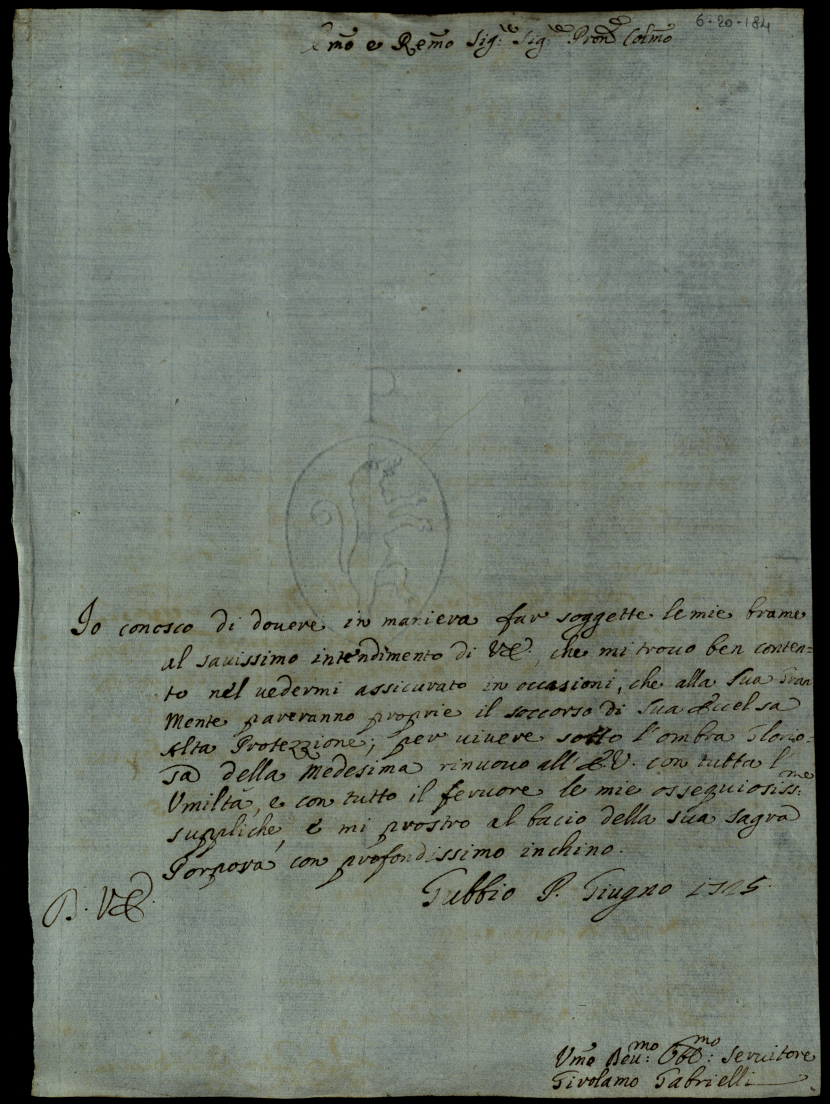 6-20-184
Emo e Remo Sig.re Sig.re Pron Colmo
Io conosco di douere in maniera far soggette le mie brame
al sauissimo intendimento di VE., che mi trouo ben conten=
to nel uedermi assicurato in occasioni, che alla Sua Gran
Mente pareranno proprie il soccorso di Sua Eccelsa
Alta Protezzione; per uiuere sotto l'ombra Glorio=
sa della Medesima rinuouo all'E.V. con tutta l'
Vmiltà, e con tutto il feruore le mie ossequiosiss:me
suppliche, e mi prostro al bacio della sua sagra
Porpora con profondissimo inchino.
Gubbio P. Giugno 1725.
B. VE.
Vmo Deu:mo Obl:mo Seruitore
Girolamo Gabrielli